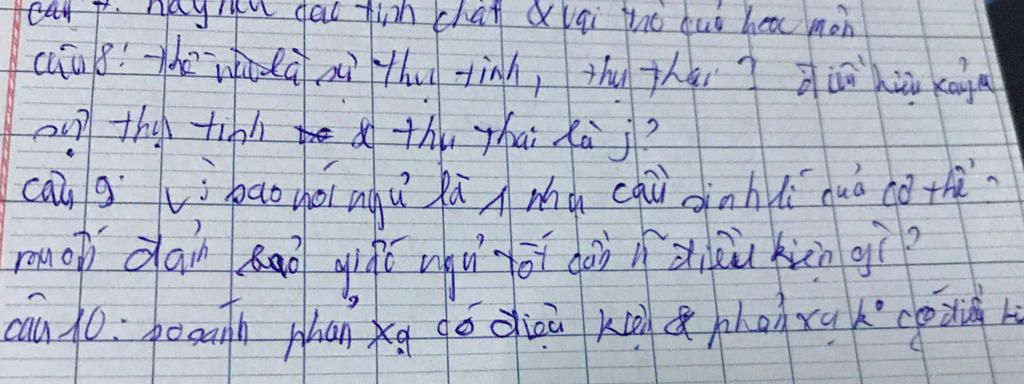 câu 7: Hãy nêu các tính chất & vai trò của hoocmôn
câu 8: thế nào là sự thụ tinh, thụ thai? điều kiện xảy ra
sự thụ tinh & thụ thai là j?
câu 9: Vì sao nói ngủ là 1 nhu cầu sinh lí của cơ thể?
muốn đảm bảo giấc ngủ tốt cần n~ điều kiện gì?
câu 10: so sánh phản xạ có điều kiện & phản xạ k° có điều ki